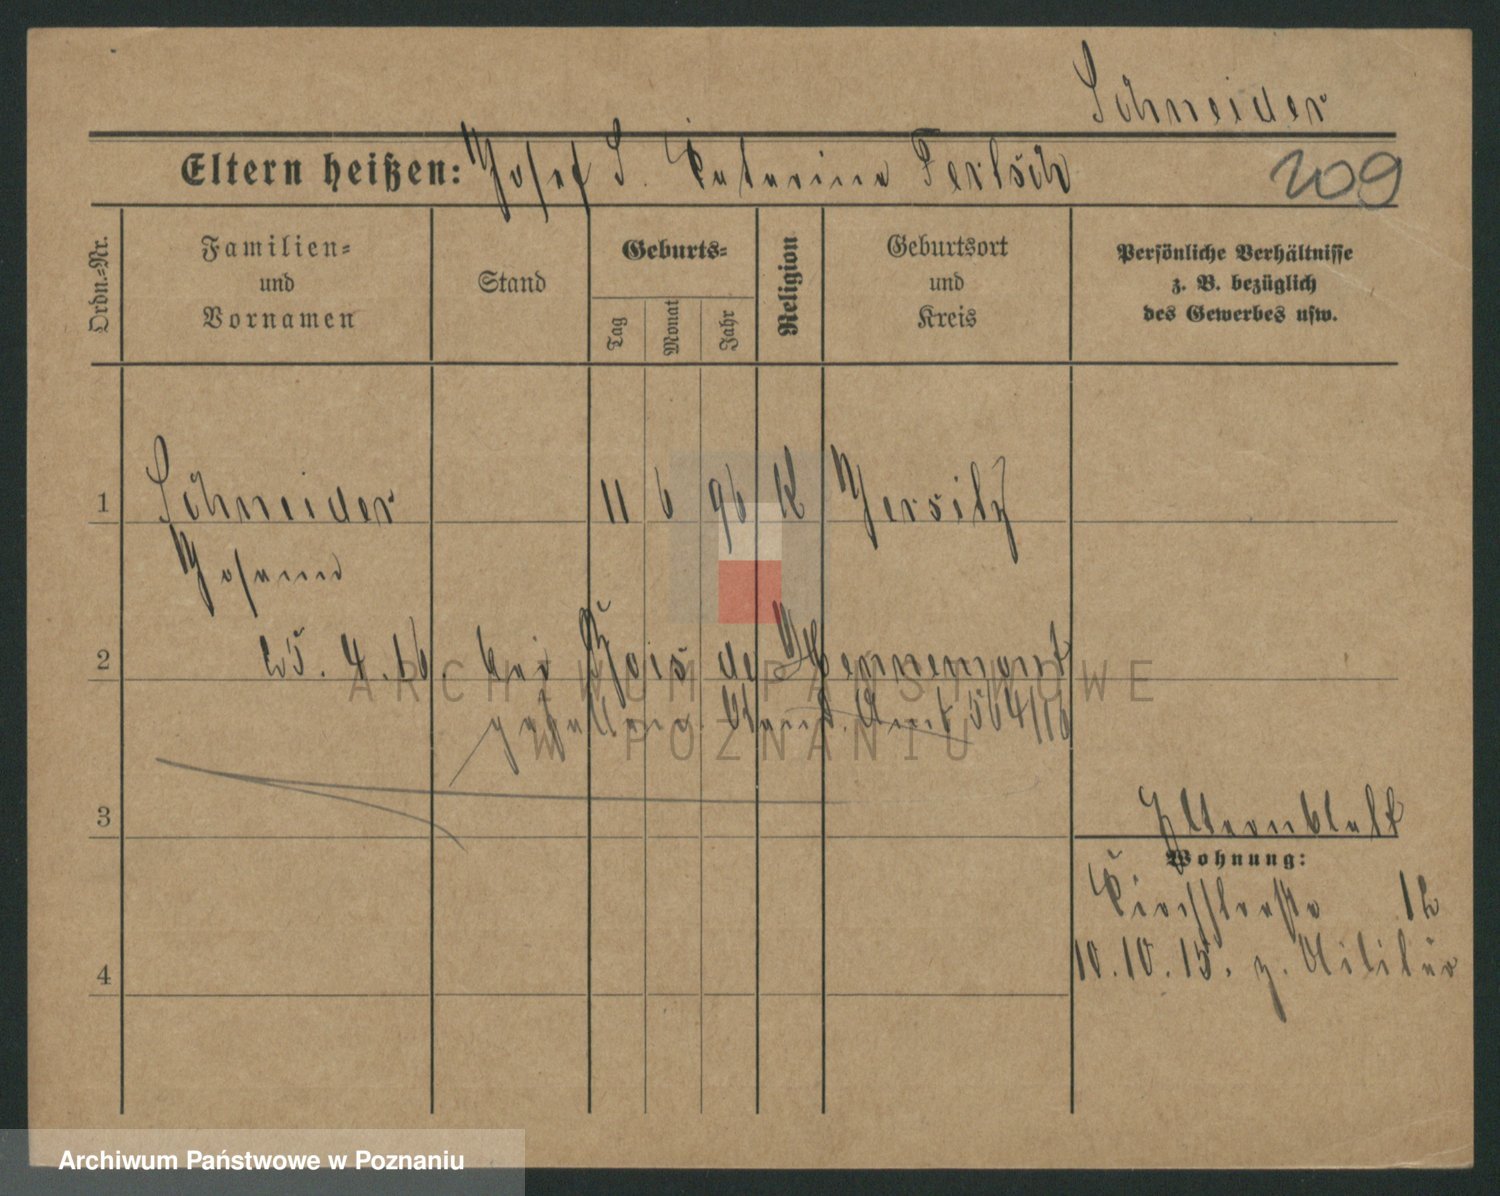 Schneider
Eltern heißen: Josef S. Catarina Perlsch
209
Ordn.-Nr.
Familien-
und
Vornamen
Stand
Geburts-
Tag
Monat
Jahr
Religion
Geburtsort
und
Kreis
Persönliche Verhältnisse
z. B. bezüglich
des Gewerbes usw.
1 Schneider 11 6 96 K Jersitz
Johann
2 25.4.16. bei Bois de
gefallen. Stand. Amt 564/16
3
Elternblatt
Wohnung:
Kirchstraße 12
10.10.15. z. Militär
4
ARCHIWUM PAŃSTWOWE
W POZNANIU
Archiwum Państwowe w Poznaniu